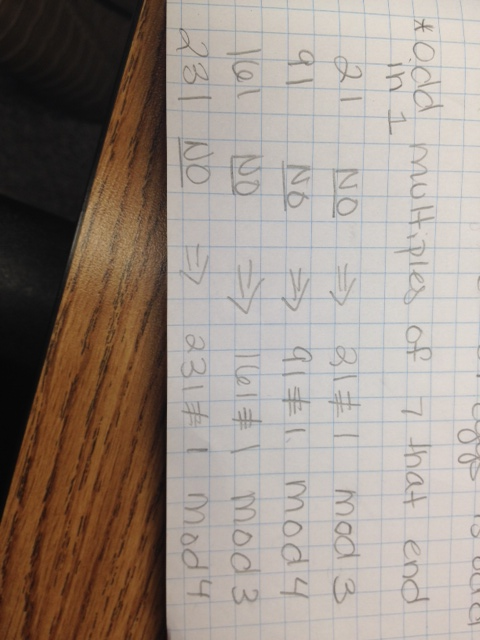 *Odd multiples of 7 that end
in 1
21 NO ⇒ 21 ≢ 1 mod 3
91 NO ⇒ 91 ≢ 1 mod 4
161 NO ⇒ 161 ≢ 1 mod 3
231 NO ⇒ 231 ≢ 1 mod 4